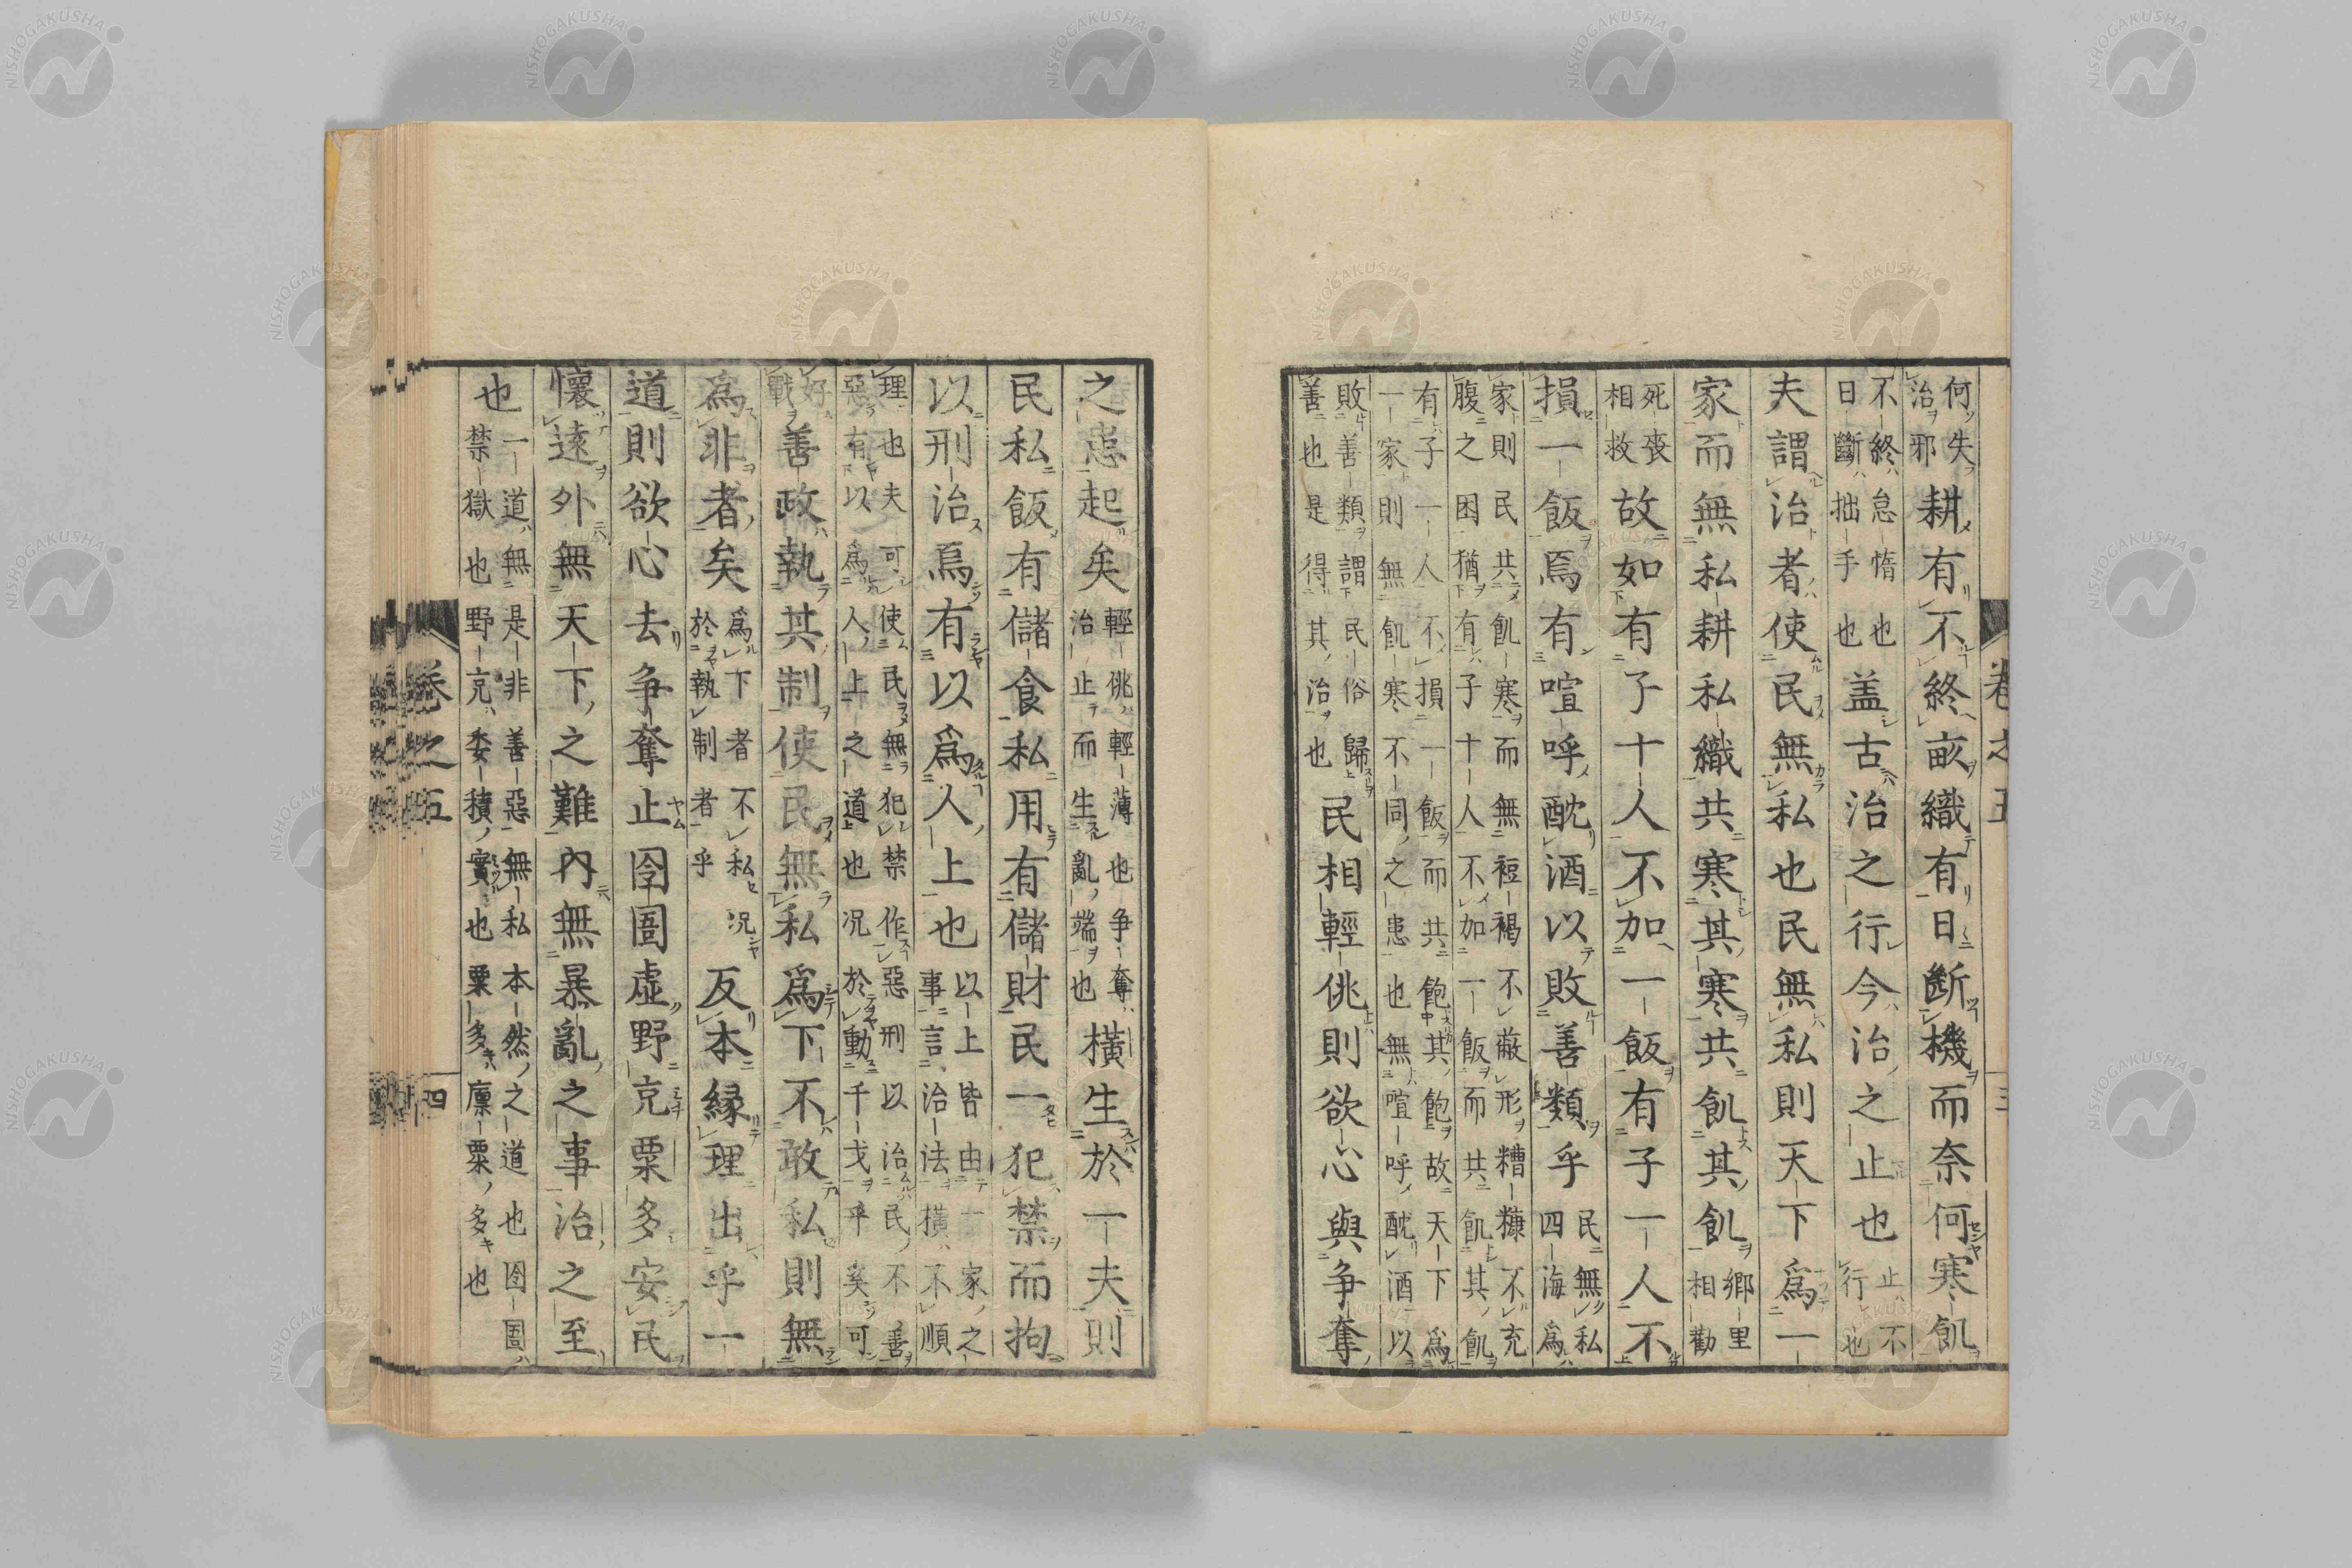 何失耕有不終畝織有日斷機而奈何寒飢
治邪
不終怠惰也盖古治之行今治之止也止不
日斷拙手也行也
夫謂治者使民無私也民無私則天下為一
家而無私耕私織共寒其寒共飢其飢鄉里
相勸
死喪故如有子十人不加一飯有子一人不
相救
損一飯焉有喧呼酖酒以敗善類乎民無私
四海為
家則民共飢寒而無裋褐不蔽形糟糠不充
腹之困猶有子十人不加一飯而共飢其飢
有子一人不損一飯而共飽其飽故天下為
一家則無飢寒不同之患也無喧呼酖酒以
敗善類謂民俗歸民相輕佻則欲心與争奪
善也是得其治也
之患起矣輕佻輕薄也争奪橫生於一夫則
治止而生亂端也
民私飯有儲食私用有儲財民一犯禁而拘
以刑治焉有以為人上也以上皆由一家之
事言治法橫不順
理也夫可使民無犯禁作惡刑以治民不善
惡有以為人上之道也況於動千戈乎奚可
好善政執其制使民無私為下不敢私則無
戰
為非者矣為下者不私況反本緣理出乎一
於執制者乎
道則欲心去争奪止囹圄虚野克粟多安民
懷遠外無天下之難內無暴亂之事治之至
也一道無是非善惡無私本然之道也囹圄
禁獄也野克委積實也粟多廩粟多也
卷之五
三
卷之五
四
NISHOGAKUSHA